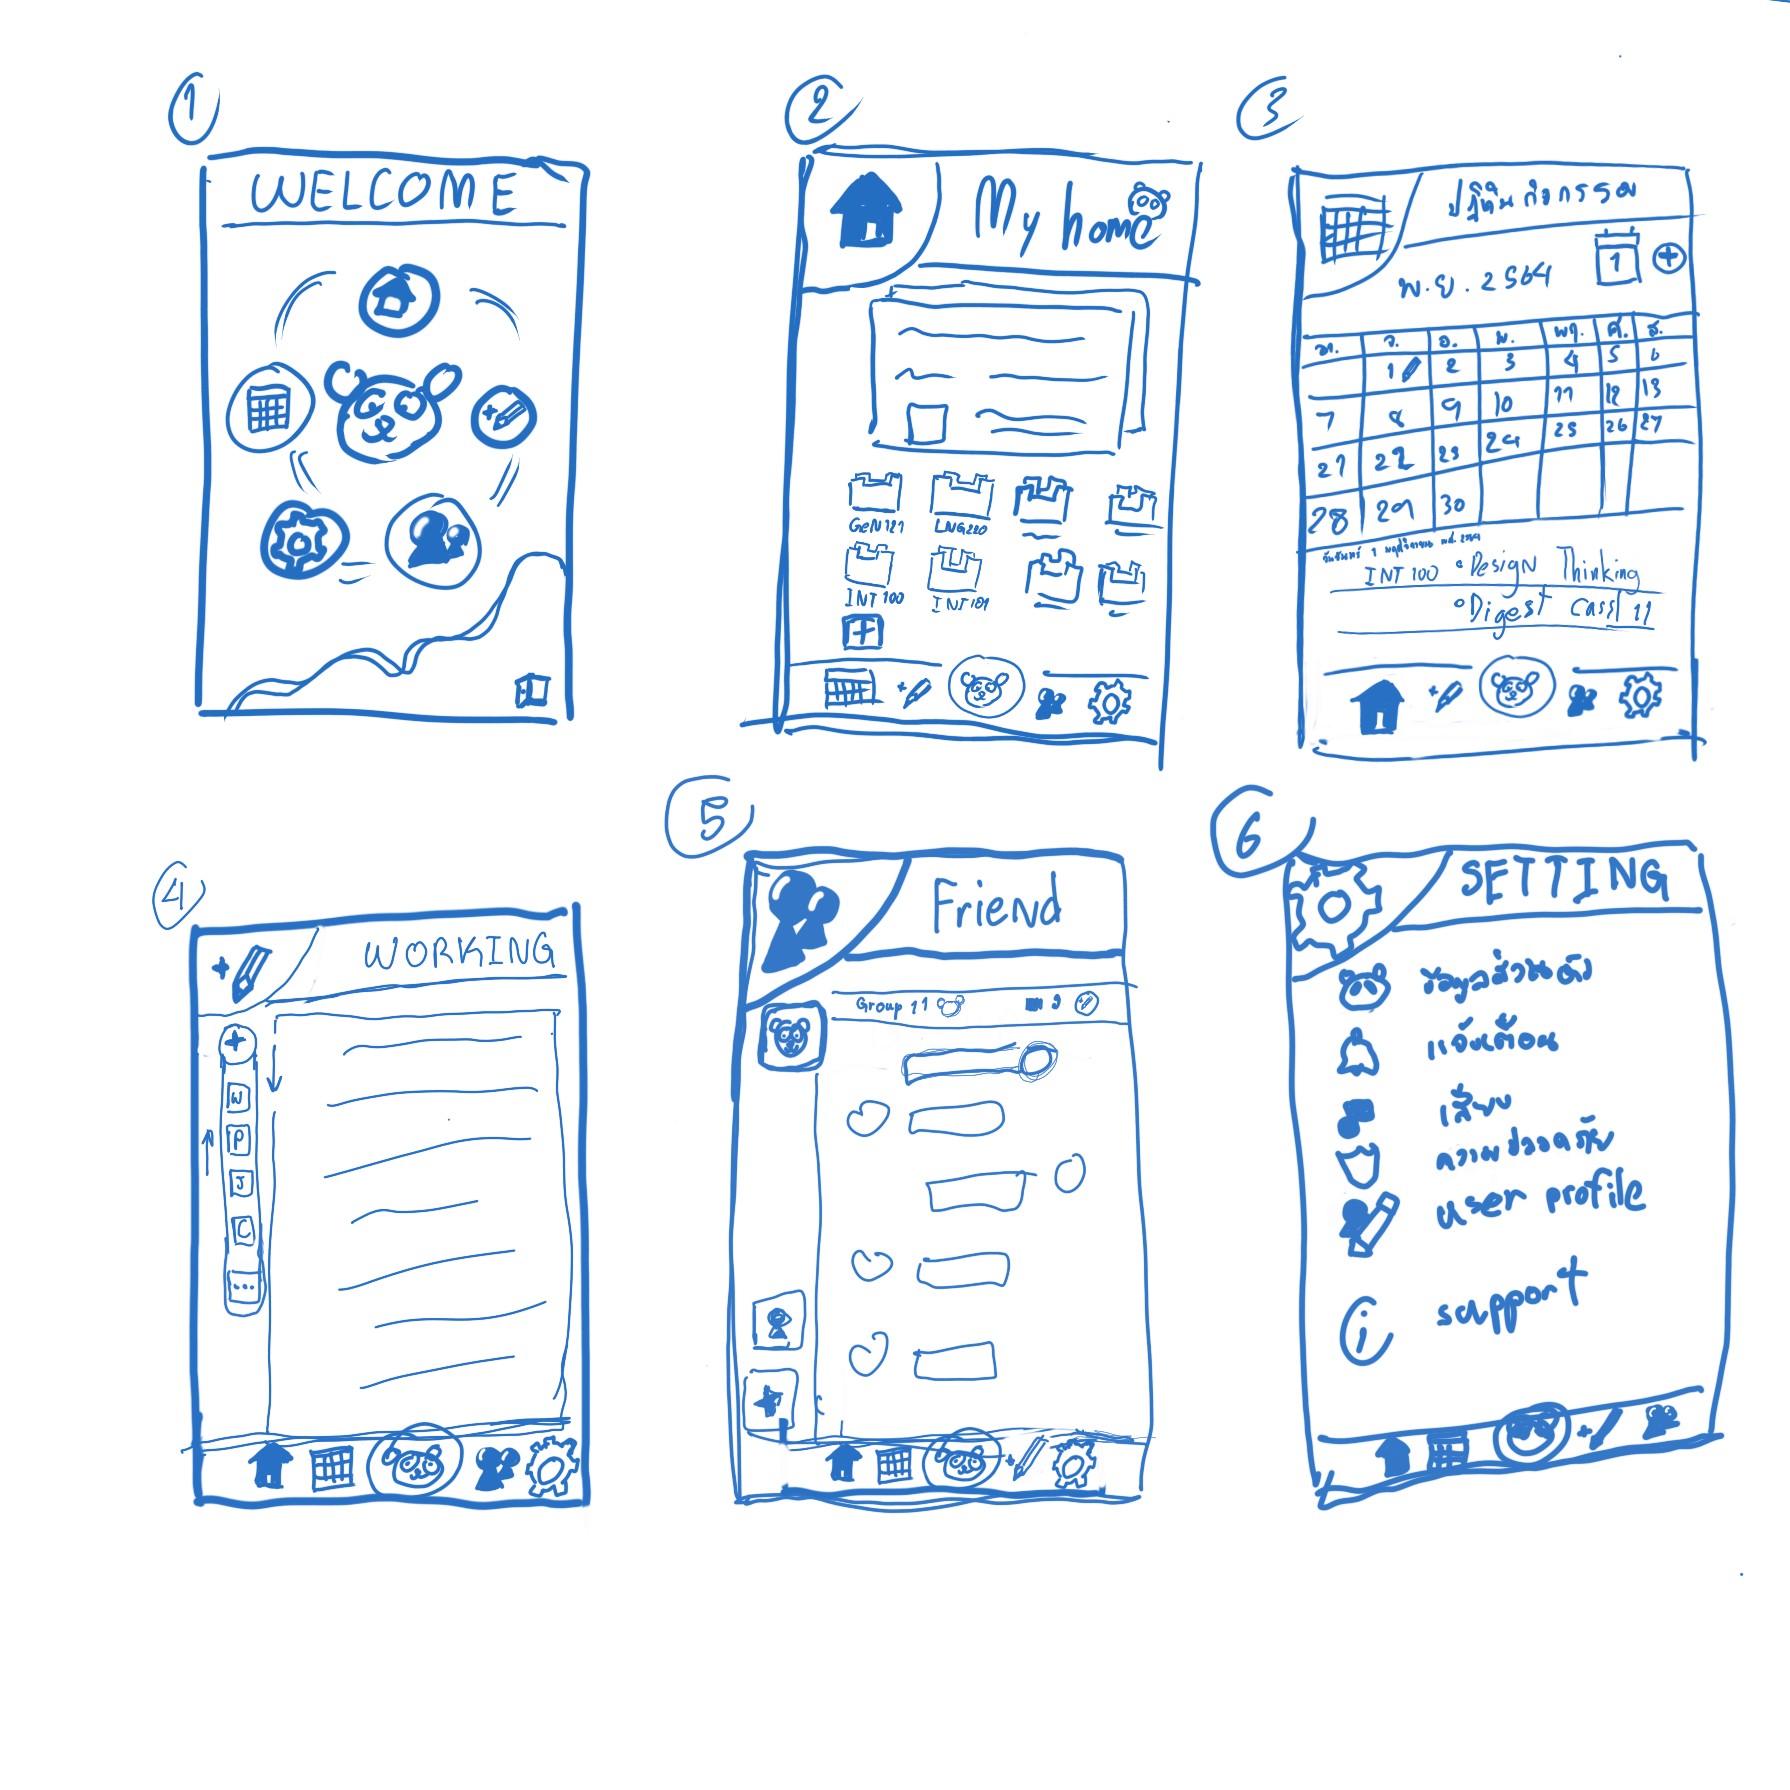 1
WELCOME
2
My home
GEN121 LNG220
INT 100 INT 101
3
ปฏิทินกิจกรรม
พ.ย. 2564
1
อา. จ. อ. พ. พฤ. ศ. ส.
1 2 3 4 5 6
7 8 9 10 11 12 13
21 22 23 24 25 26 27
28 29 30
วันจันทร์ 1 พฤศจิกายน พศ. 2564
INT 100 Design Thinking
Digest 11
4
WORKING
W
P
J
C
...
5
Friend
Group 11
6
SETTING
ข้อมูลส่วนตัว
แจ้งเตือน
เสียง
ความปลอดภัย
user profile
i support